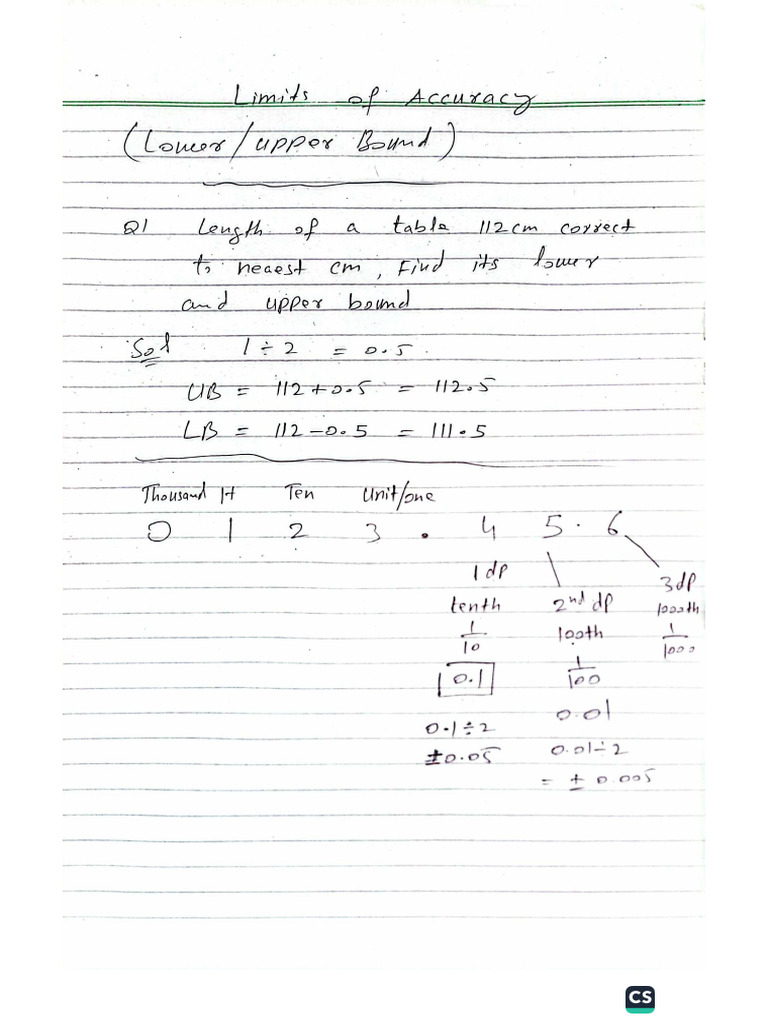 Limits of Accuracy
(Lower/upper Bound)
Q1 Length of a table 112cm correct
to neaest cm, Find its lower
and upper bound
Sol 1 ÷ 2 = 0.5
UB = 112 + 0.5 = 112.5
LB = 112 - 0.5 = 111.5
Thousand H Ten Unit/one
0 1 2 3 . 4 5 . 6
1 dp 2nd dp 3dp
tenth 100th 1000th
1/10 1/100 1/1000
0.1 0.01
0.1 ÷ 2 0.01 ÷ 2
±0.05 = ± 0.005
CS